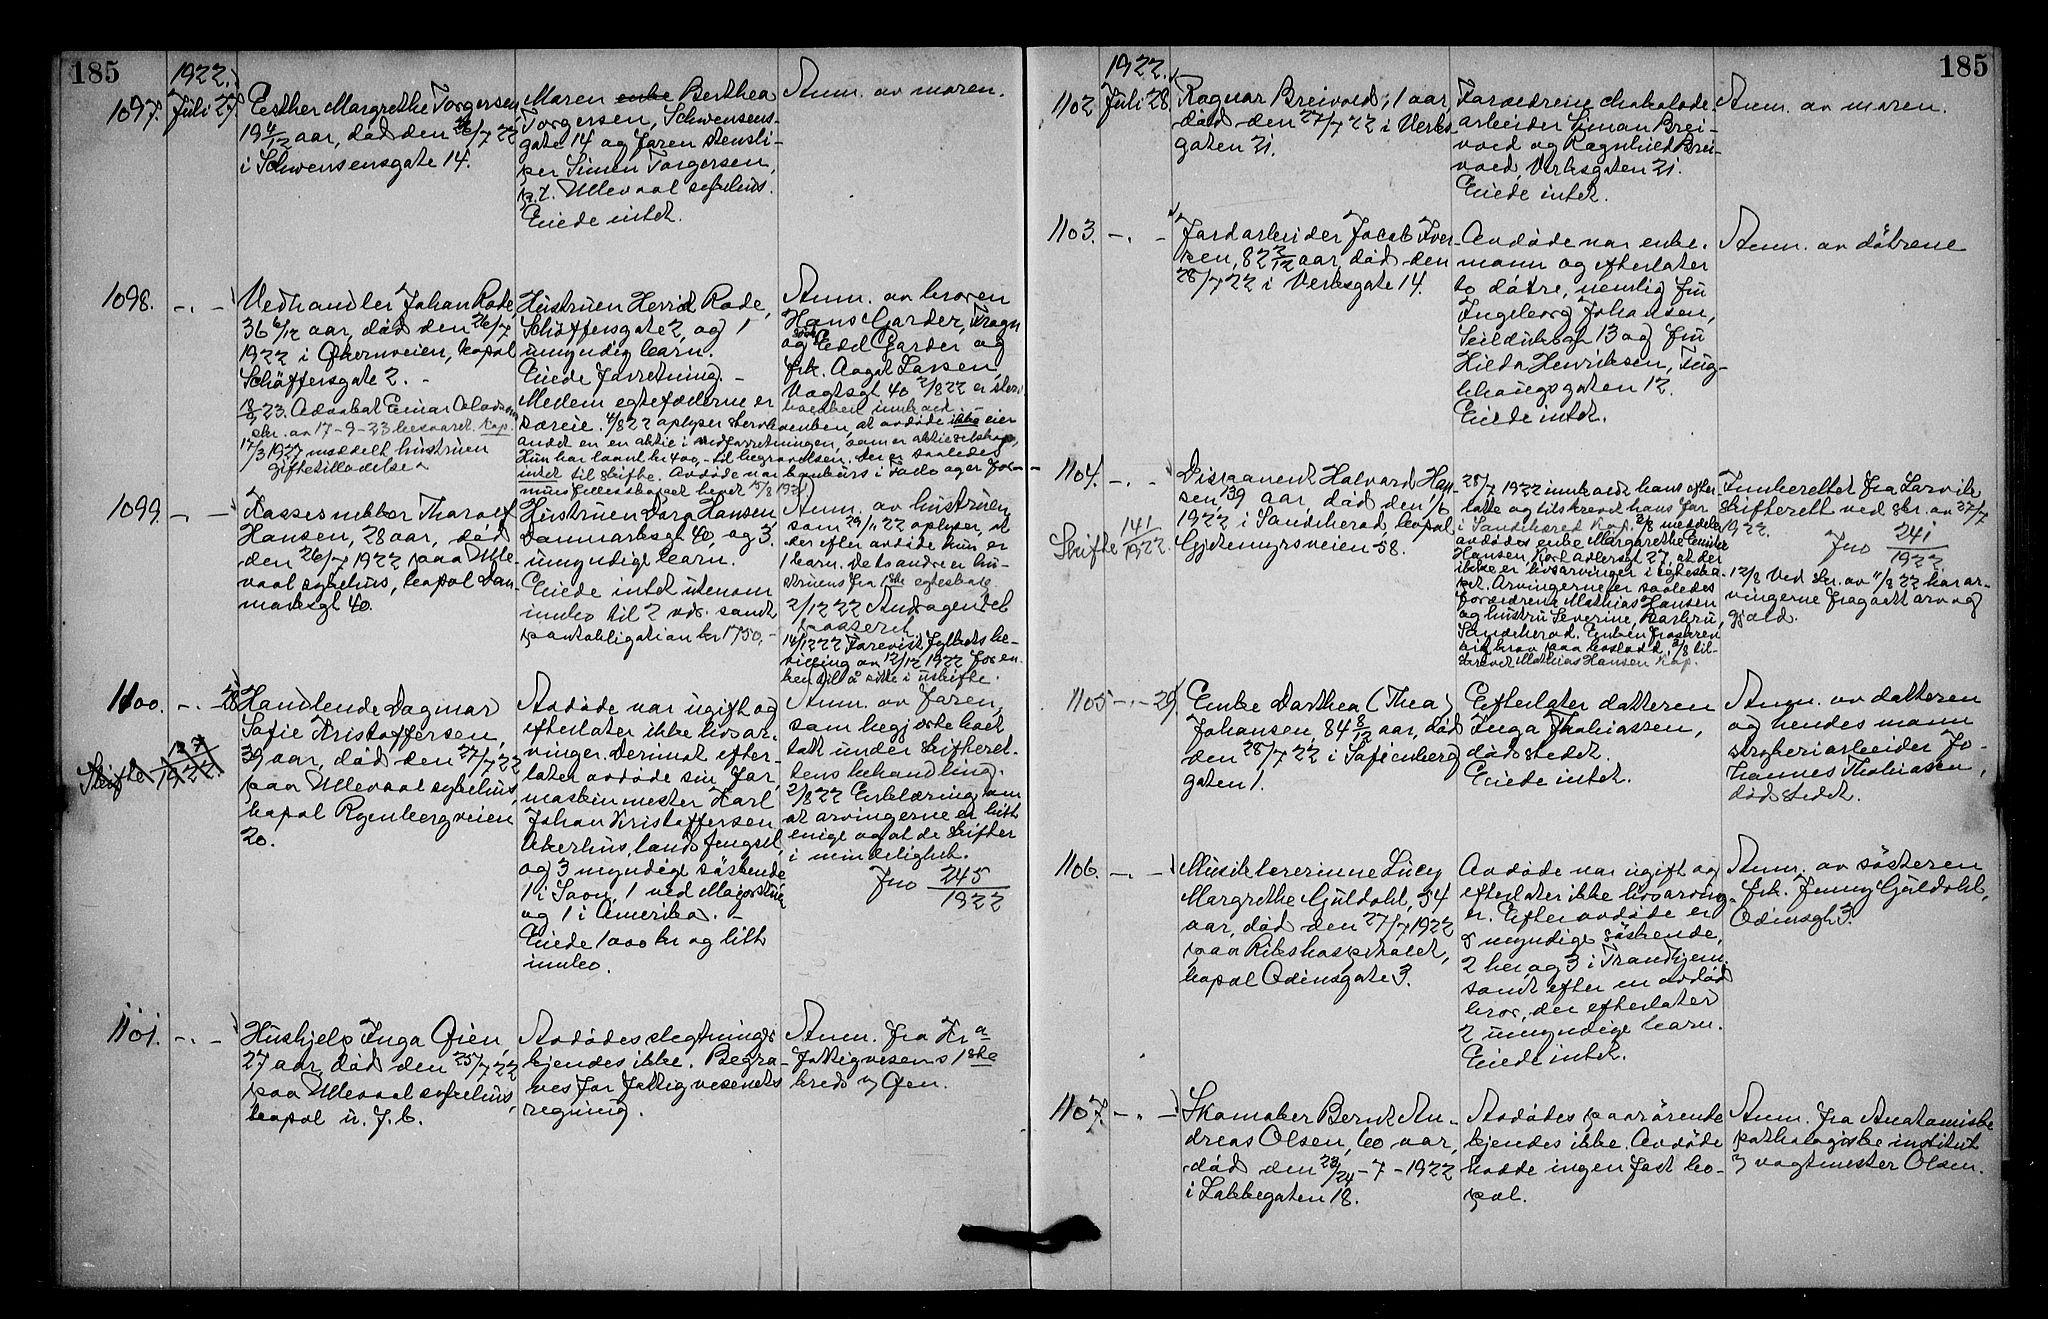 185
1922.
1097. Juli 27.
Esther Margrethe Torgersen,
19 6/12 aar, död den 26/7 22
i Schwensensgate 14.
Moren enke Berthea
Torgersen, Schwensens-
gate 14 og faren stensli-
per Simen Torgersen,
p.t. Ullevaal sykehus.
Eiede intet.
Anm. av moren.
1098. -.- 
Vedhandler Johan Rode,
36 6/12 aar, död den 26/7
1922 i Økernveien, bopæl
Schäffersgate 2. -
18/9 23. Advokat Einar
skr. av 17-9-23 besvaret. Kop.
17/3 1927 meddelt hustruen
giftetilladelse
Hustruen Herrid Rode,
Schäffersgate 2, og 1
umyndig barn.
Eiede forretning. -
Mellem egtefællerne er
særeie. 4/8 22 oplyser sterboenken, at avdöde ikke eier
andet en en aktie i vedforretningen, som er aktieselskap,
Hun har laant kr 400,- til begravelsen. Der er saaledes
intet til skifte. Avdöde var konkurs i
Anm. av broren
Hans Garder,
og Edd Garder og
frk. Aagot Larsen,
Vogtsgt 40 2/8 22 er
1099. -.-
Hansen, 28 aar, död
den 26/7 1922 paa Ulle-
vaal sykehus, bopæl Dan-
marksgt 40.
Hustruen Dora Hansen,
Danmarksgt 40, og 3
umyndige barn.
Eiede intet utenom
innbo til 2 vær. samt
pantobligation kr 1750,-
Anm. av hustruen
som 29/11 22 oplyser, at
der efter avdöde kun er
1 barn. De to andre er hu-
struens fra 1ste egteskap.
2/12 22 Andragendet
14/12 22 Forevist Fylkets be-
villing av 12/12 1922 for en-
ken til å sitte i uskifte.
1100. -.- 28
Skifte 137/1922.
Handlende Dagmar
Sofie Kristoffersen,
39 aar, död den 27/7 22
paa Ullevaal sykehus,
bopæl Ryenbergveien
20.
Avdöde var ugift og
efterlater ikke livsar-
vinger. Derimot efter-
later avdöde sin far,
maskinmester Karl
Johan Kristoffersen
Akerhus landsfengsel,
og 3 myndige söskende
1 i Saon, 1 ved Majorstuen
og 1 i Amerika. -
Eiede 1000 kr og litt
innbo.
Anm. av faren,
som begjærte boet
tatt under skifteret-
tens behandling.
2/8 22 Erklæring om
at arvingerne er blitt
enige og at de skifter
i mindelighet.
Jno 245/1922
1101. -.-
Hushjelp Inga Øien,
27 aar, död den 25/7 22
paa Ullevaal sykehus,
bopæl u. f. b.
Avdödes slegtninger
kjendes ikke. Begra-
ves for fattigvesenets
regning.
Anm. fra Kr.a
fattigvesens 1ste
kreds v/ Øen.
185
1922.
1102 Juli 28.
Ragnar Breivold, 1 aar
död den 27/7 22 i Verks-
gaten 21.
Forældrene chokolade-
arbeider Simon Brei-
vold og Ragnhild Brei-
vold, Verksgaten 21.
Eiede intet.
Anm. av moren.
1103. -.-
Jordarbeider Jacob Iver-
sen, 82 2/12 aar, död den
28/7 22 i Verksgate 14.
Avdöde var enke-
mann og efterlater
to døtre, nemlig fru
Ingeborg Johansen,
Seilduksgt 13 og fru
Hilda Henriksen, Fug-
lehaugsgaten 12.
Eiede intet.
Anm. av døtrene
1104. -.-
Skifte 141/1922.
Disponent Halvard Han-
sen, 39 aar, död den 1/6
1922 i Sandeherad, bopæl
Gjetemyrsveien 58.
28/7 1922 innkaldt hans efter-
latte og tilskrevet hans far
i Sandeherad Kop. 2/8 meddeler
avdödes enke Margarethe
Hansen, Kort Adlersgt 27, at der
ikke er livsarvinger i egteska-
pet. Arvingerne er saaledes
forældrene Mathias Hansen
og hustru Severine,
Sandeherad. Enken
krav paa boslodd, 2/8 til-
skrevet Mathias Hansen Kop.
Innberettet fra Larvik
skifterett ved skr. av 27/7
1922.
Jno 241/1922
12/8 Ved skr. av 11/8 22 har ar-
vingerne fragaatt arv og
gjæld.
1105 -.- 29
Enke Dorthea (Thea)
Johansen, 84 8/12 aar, död
den 28/7 22 i Sofienberg-
gaten 1.
Efterlater datteren
Inga Thobiassen,
dödsstedet.
Eiede intet.
Anm. av datteren
og hendes mann
stoberiarbeider Jo-
hannes Thobiassen,
dödsstedet.
1106. -.-
Musiklærerinne Lucy
Margrethe Guldahl, 54
aar, död den 27/7 1922
paa Rikshospitalet,
bopæl Odinsgate 3.
Avdöde var ugift og
efterlater ikke livsarving-
er. Efter avdöde er
5 myndige söskende,
2 her, og 3 i Trondhjem
samt efter en avdöd
bror, der efterlater
2 umyndige barn.
Eiede intet.
Anm. av søsteren
frk. Jenny Guldahl,
Odinsgt 3.
1107. -.-
Skomaker Bernt An-
dreas Olsen, 60 aar,
död den 23/24 - 7 - 1922
i Lakkegaten 18.
Avdödes paarörende
kjendes ikke. Avdöde
hadde ingen fast bo-
pæl.
Anm. fra Anatomiske
pathologiske institut
v/ vagtmester Olsen.